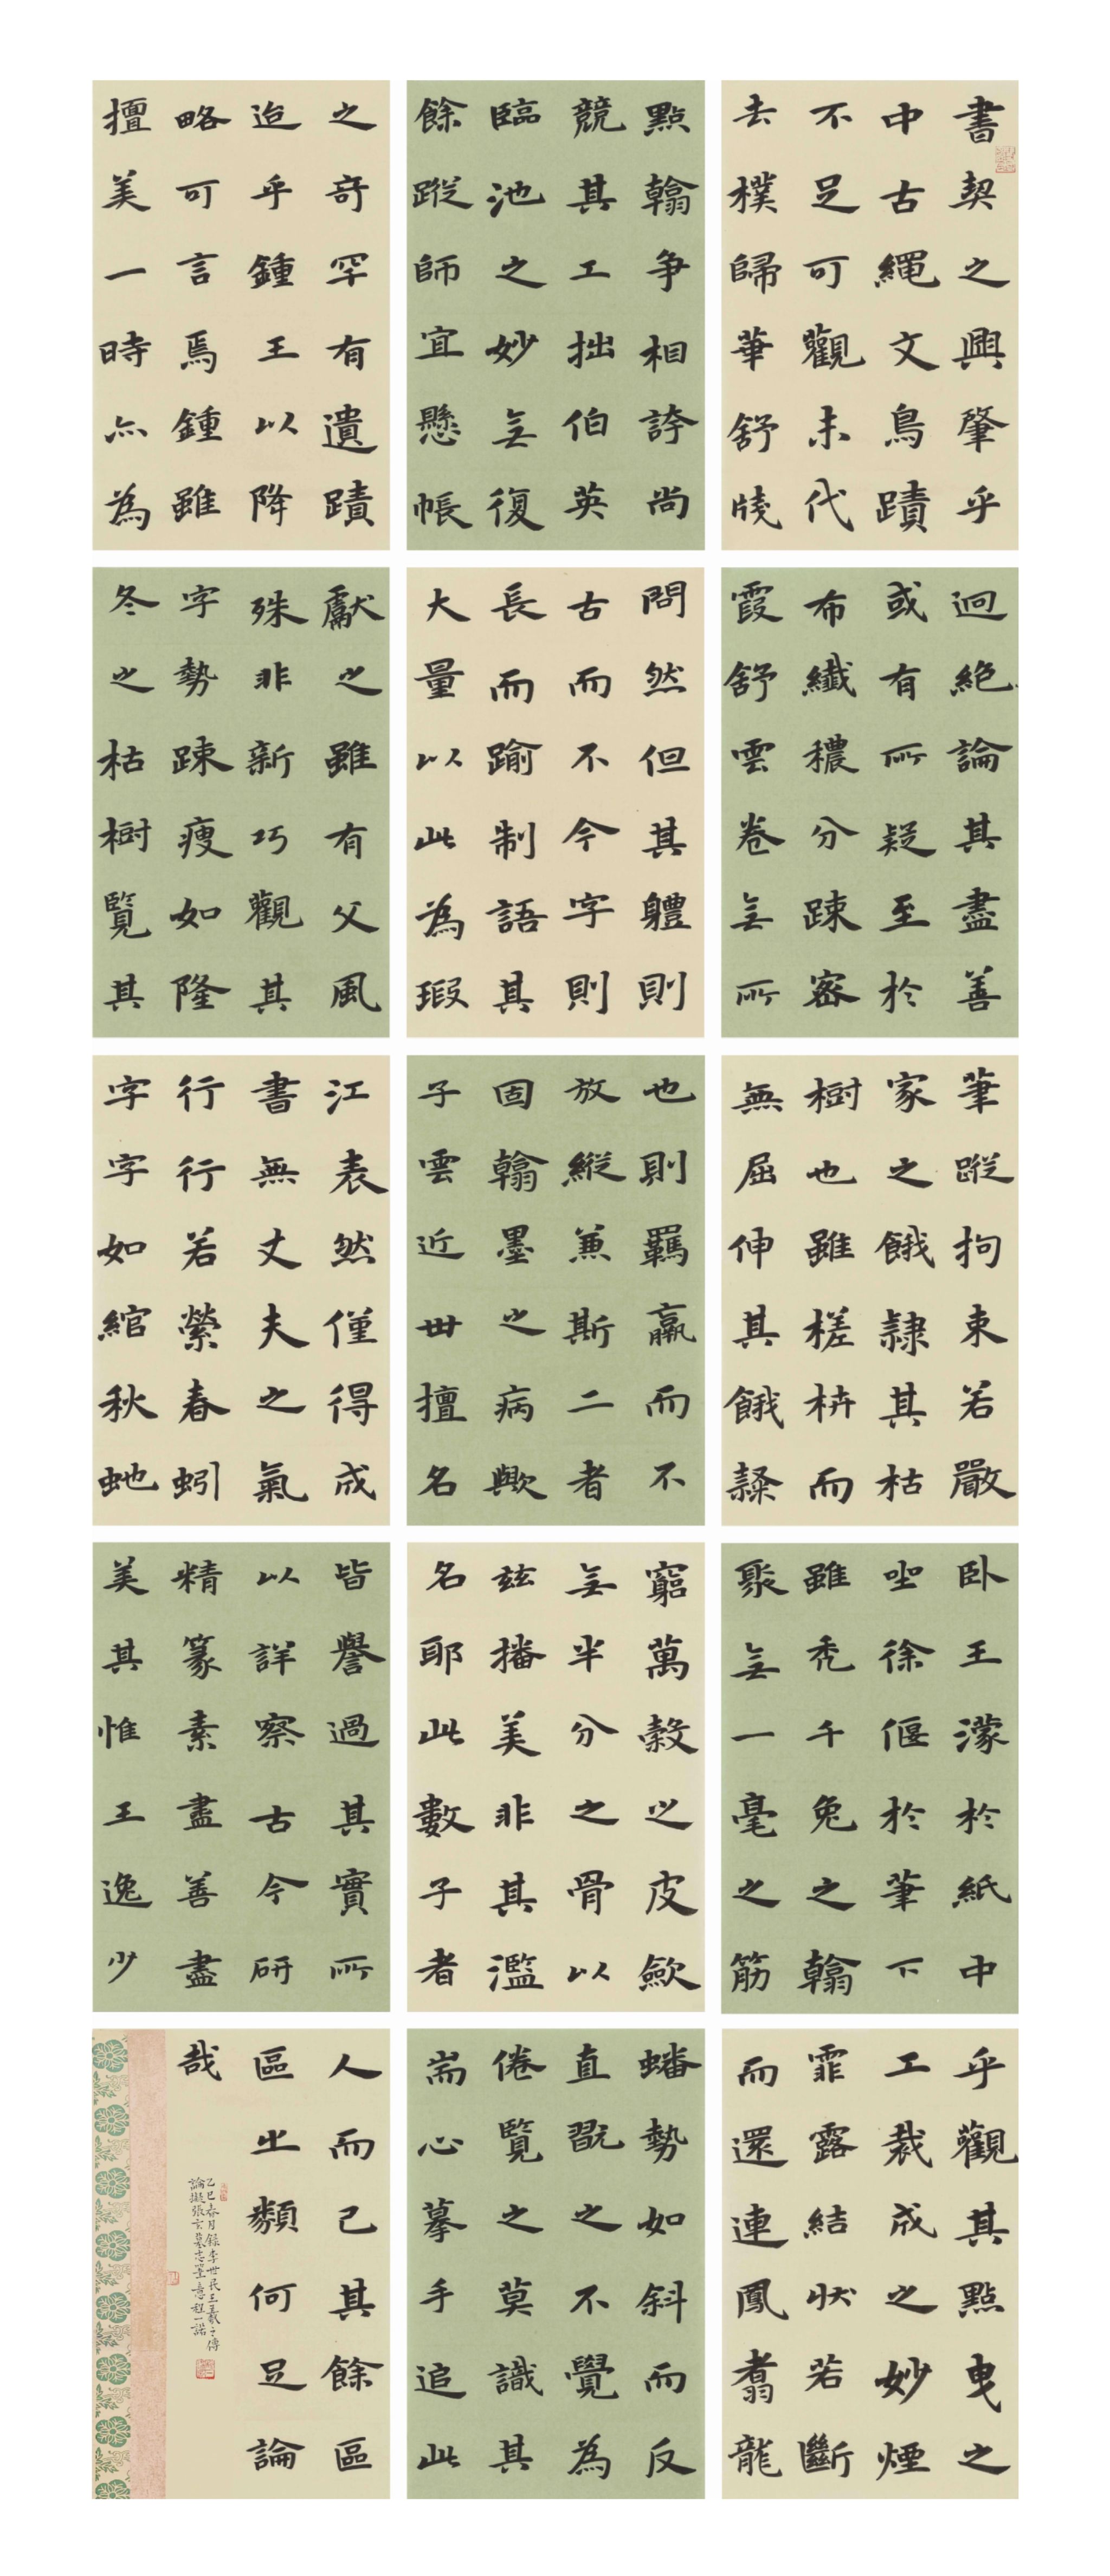 書契之興肇乎
中古繩文鳥蹟
不足可觀末代
去樸歸華舒牋
點翰争相誇尚
競其工拙伯英
臨池之妙無復
餘蹤師宜懸帳
之奇罕有遺蹟
迨乎鍾王以降
略可言焉鍾雖
擅美一時亦為
迥絕論其盡善
或有所疑至於
布纖穠分踈密
霞舒雲卷無所
問然但其軆則
古而不今字則
長而踰制語其
大量以此為瑕
獻之雖有父風
殊非新巧觀其
字勢踈瘦如隆
冬之枯樹覽其
筆蹤拘束若嚴
家之餓隸其枯
樹也雖槎枿而
無屈伸其餓隸
也則羈羸而不
放縱兼斯二者
固翰墨之病歟
子雲近世擅名
江表然僅得成
書無丈夫之氣
行行若縈春蚓
字字如綰秋虵
卧王濛於紙中
坐徐偃於筆下
雖禿千兔之翰
聚無一毫之筋
窮萬穀之皮斂
無半分之骨以
茲播美非其濫
名耶此數子者
皆譽過其實所
以詳察古今研
精篆素盡善盡
美其惟王逸少
乎觀其點曳之
工裁成之妙煙
霏露結狀若斷
而還連鳳翥龍
蟠勢如斜而反
直翫之不覺為
倦覽之莫識其
耑心摹手追此
人而已其餘區
區之類何足論
哉
乙巳春月錄李世民王羲之傳
論擬張玄墓志筆意程一諾